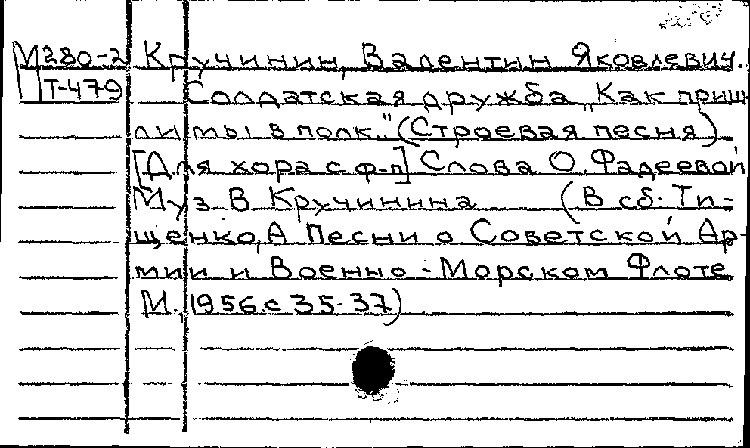 М280-2 Кручинин, Валентин Яковлевич.
Т-479 Солдатская дружба „Как приш-
ли мы в полк." (Строевая песня)
[Для хора с ф-п] Слова О. Фадеевой
Муз. В Кручинина (В сб: Ти-
щенко, А Песни о Советской Ар-
мии и Военно-Морском Флоте
М. 1956. с 35-37)